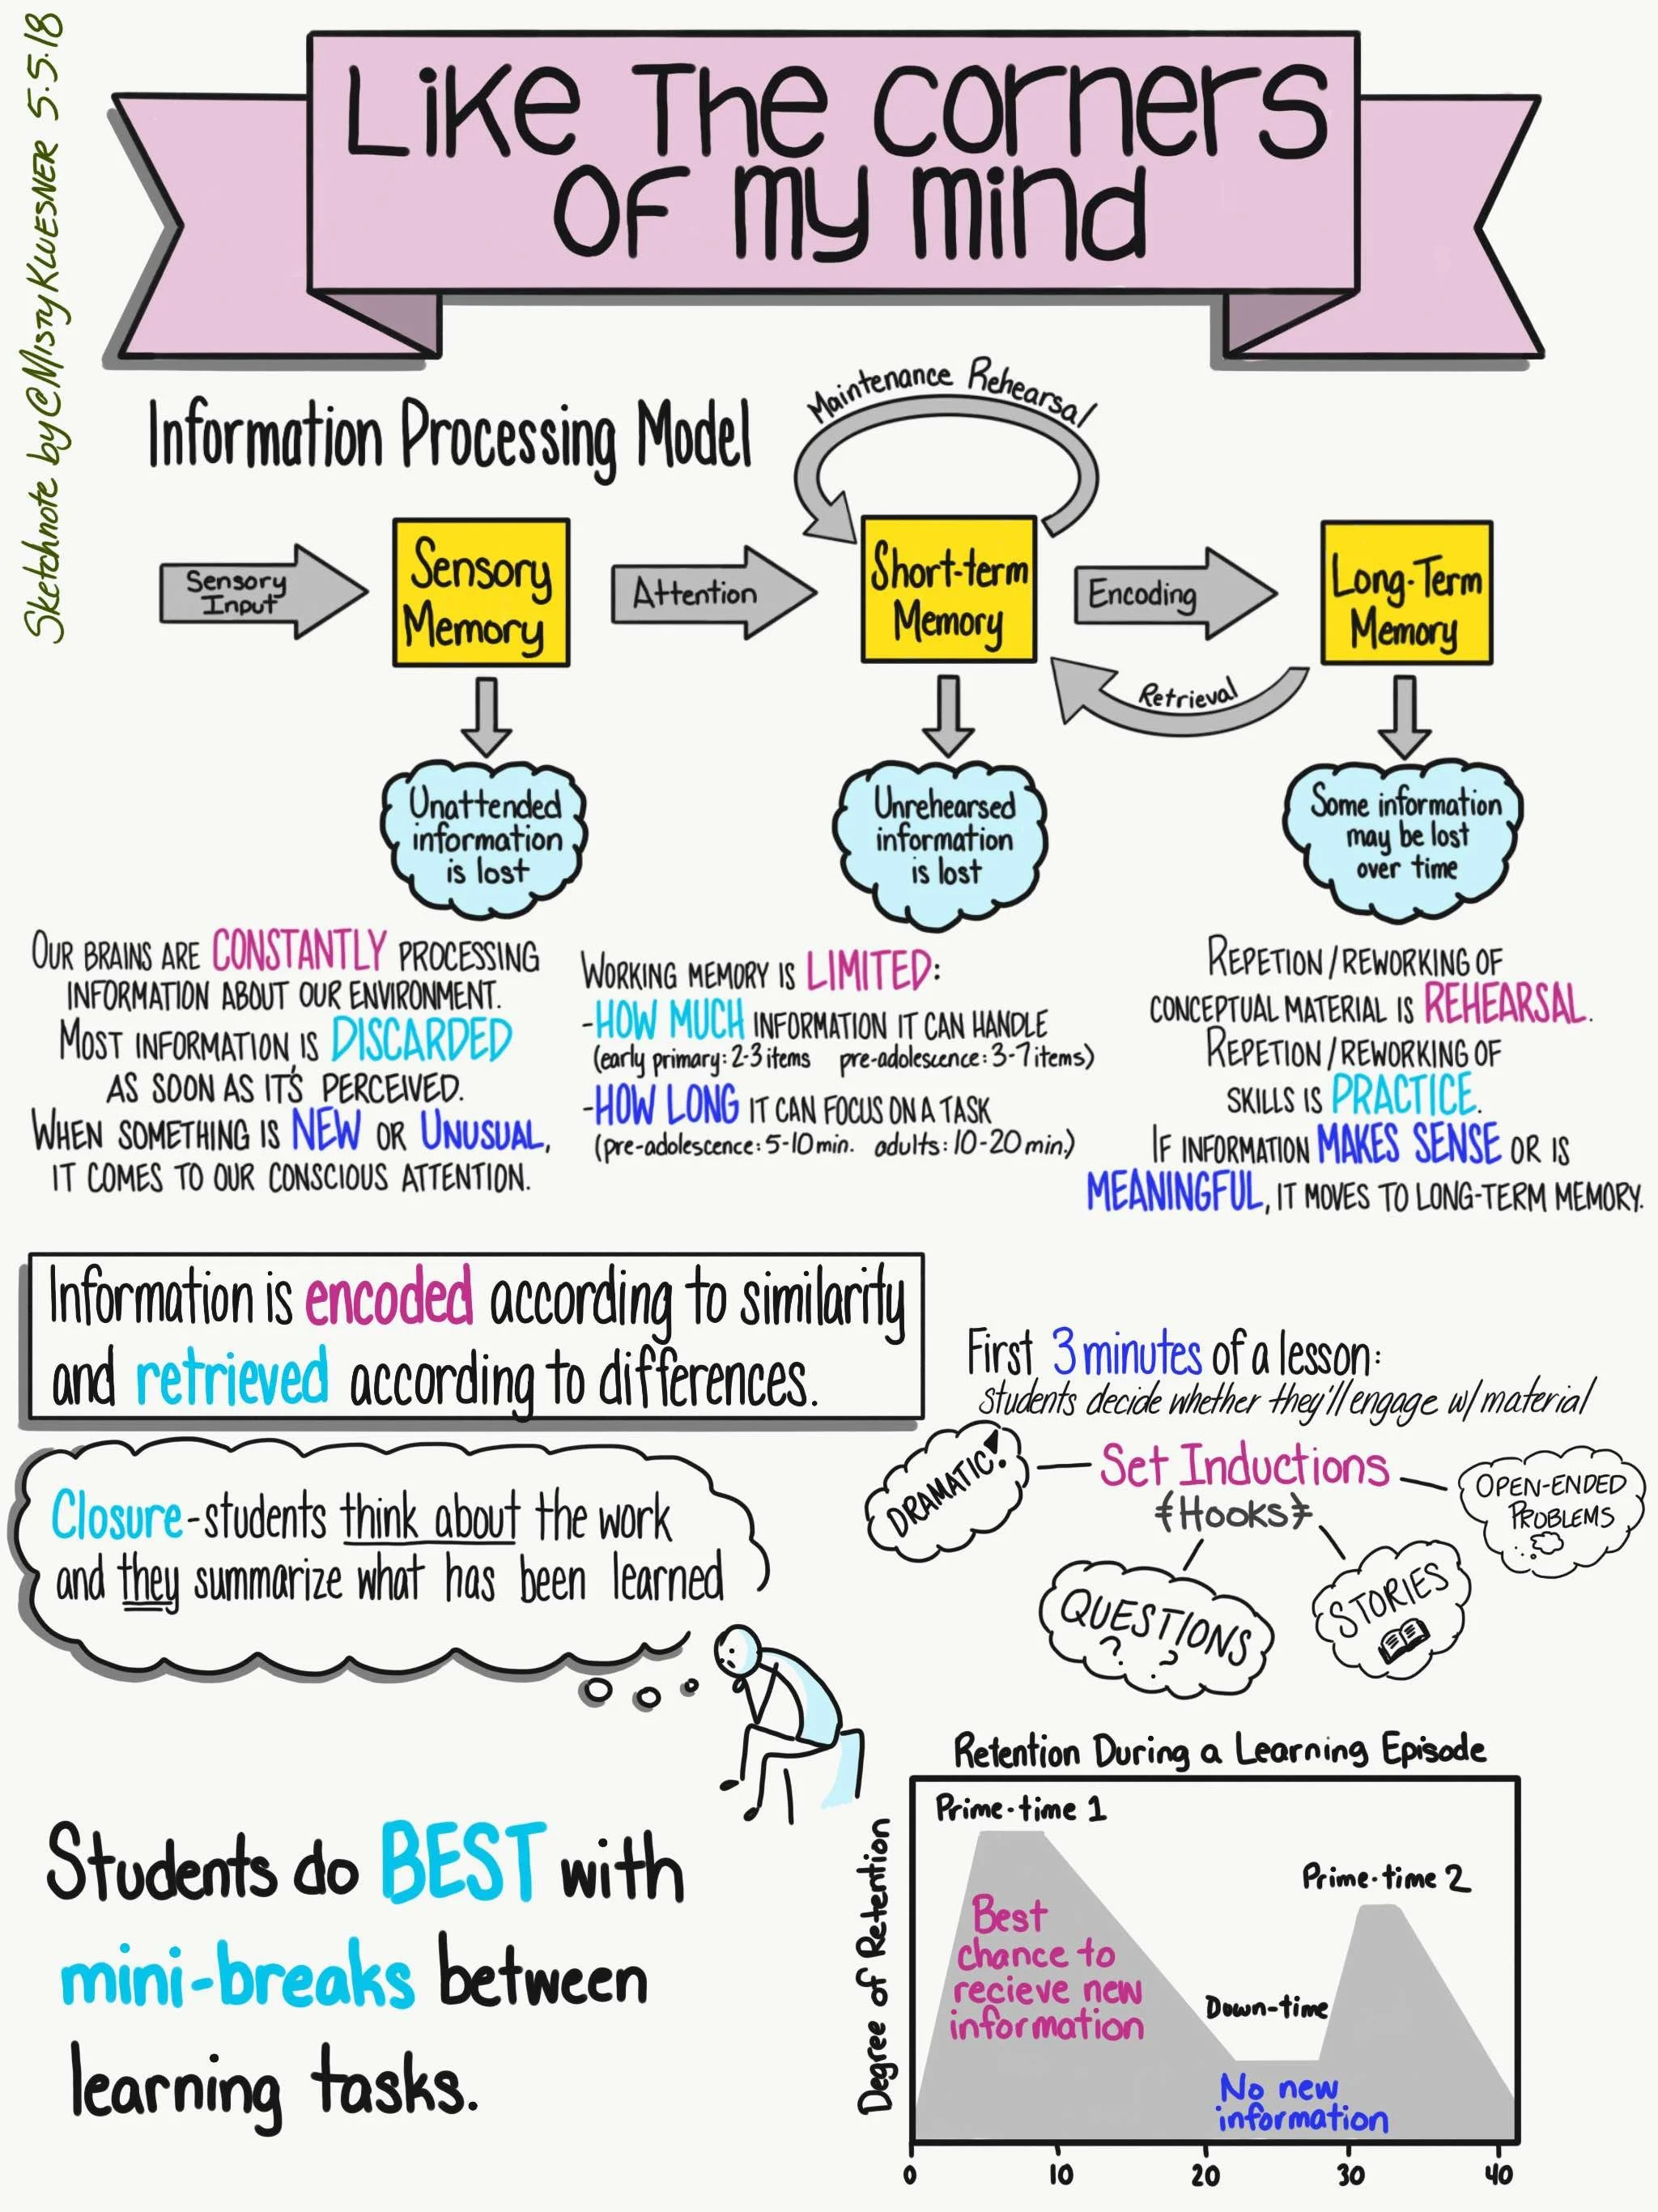 Sketchnote by @MistyKluesner 5.5.18
Like The corners
of my mind
Information Processing Model
Maintenance Rehearsal
Sensory
Input
Sensory
Memory
Attention
Short-term
Memory
Encoding
Long-Term
Memory
Retrieval
Unattended
information
is lost
Unrehearsed
information
is lost
Some information
may be lost
over time
OUR BRAINS ARE CONSTANTLY PROCESSING
INFORMATION ABOUT OUR ENVIRONMENT.
MOST INFORMATION IS DISCARDED
AS SOON AS IT'S PERCEIVED.
WHEN SOMETHING IS NEW OR UNUSUAL,
IT COMES TO OUR CONSCIOUS ATTENTION.
WORKING MEMORY IS LIMITED:
-HOW MUCH INFORMATION IT CAN HANDLE
(early primary: 2-3 items pre-adolescence: 3-7 items)
-HOW LONG IT CAN FOCUS ON A TASK
(pre-adolescence: 5-10 min. adults: 10-20 min.)
REPETION/REWORKING OF
CONCEPTUAL MATERIAL IS REHEARSAL.
REPETION/REWORKING OF
SKILLS IS PRACTICE.
IF INFORMATION MAKES SENSE OR IS
MEANINGFUL, IT MOVES TO LONG-TERM MEMORY.
Information is encoded according to similarity
and retrieved according to differences.
First 3 minutes of a lesson:
students decide whether they'll engage w/ material
DRAMATIC!
Set Inductions
{Hooks}
OPEN-ENDED
PROBLEMS
QUESTIONS
? ?
STORIES
Closure-students think about the work
and they summarize what has been learned
Students do BEST with
mini-breaks between
learning tasks.
Retention During a Learning Episode
Degree of Retention
Prime-time 1
Prime-time 2
Best
chance to
recieve new
information
Down-time
No new
information
0 10 20 30 40